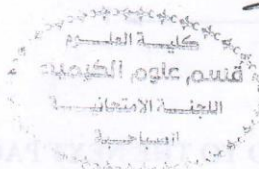 كليـة العلـوم
قسم علوم الكيمياء
اللجنـة الامتحانيـة
الصباحيـة